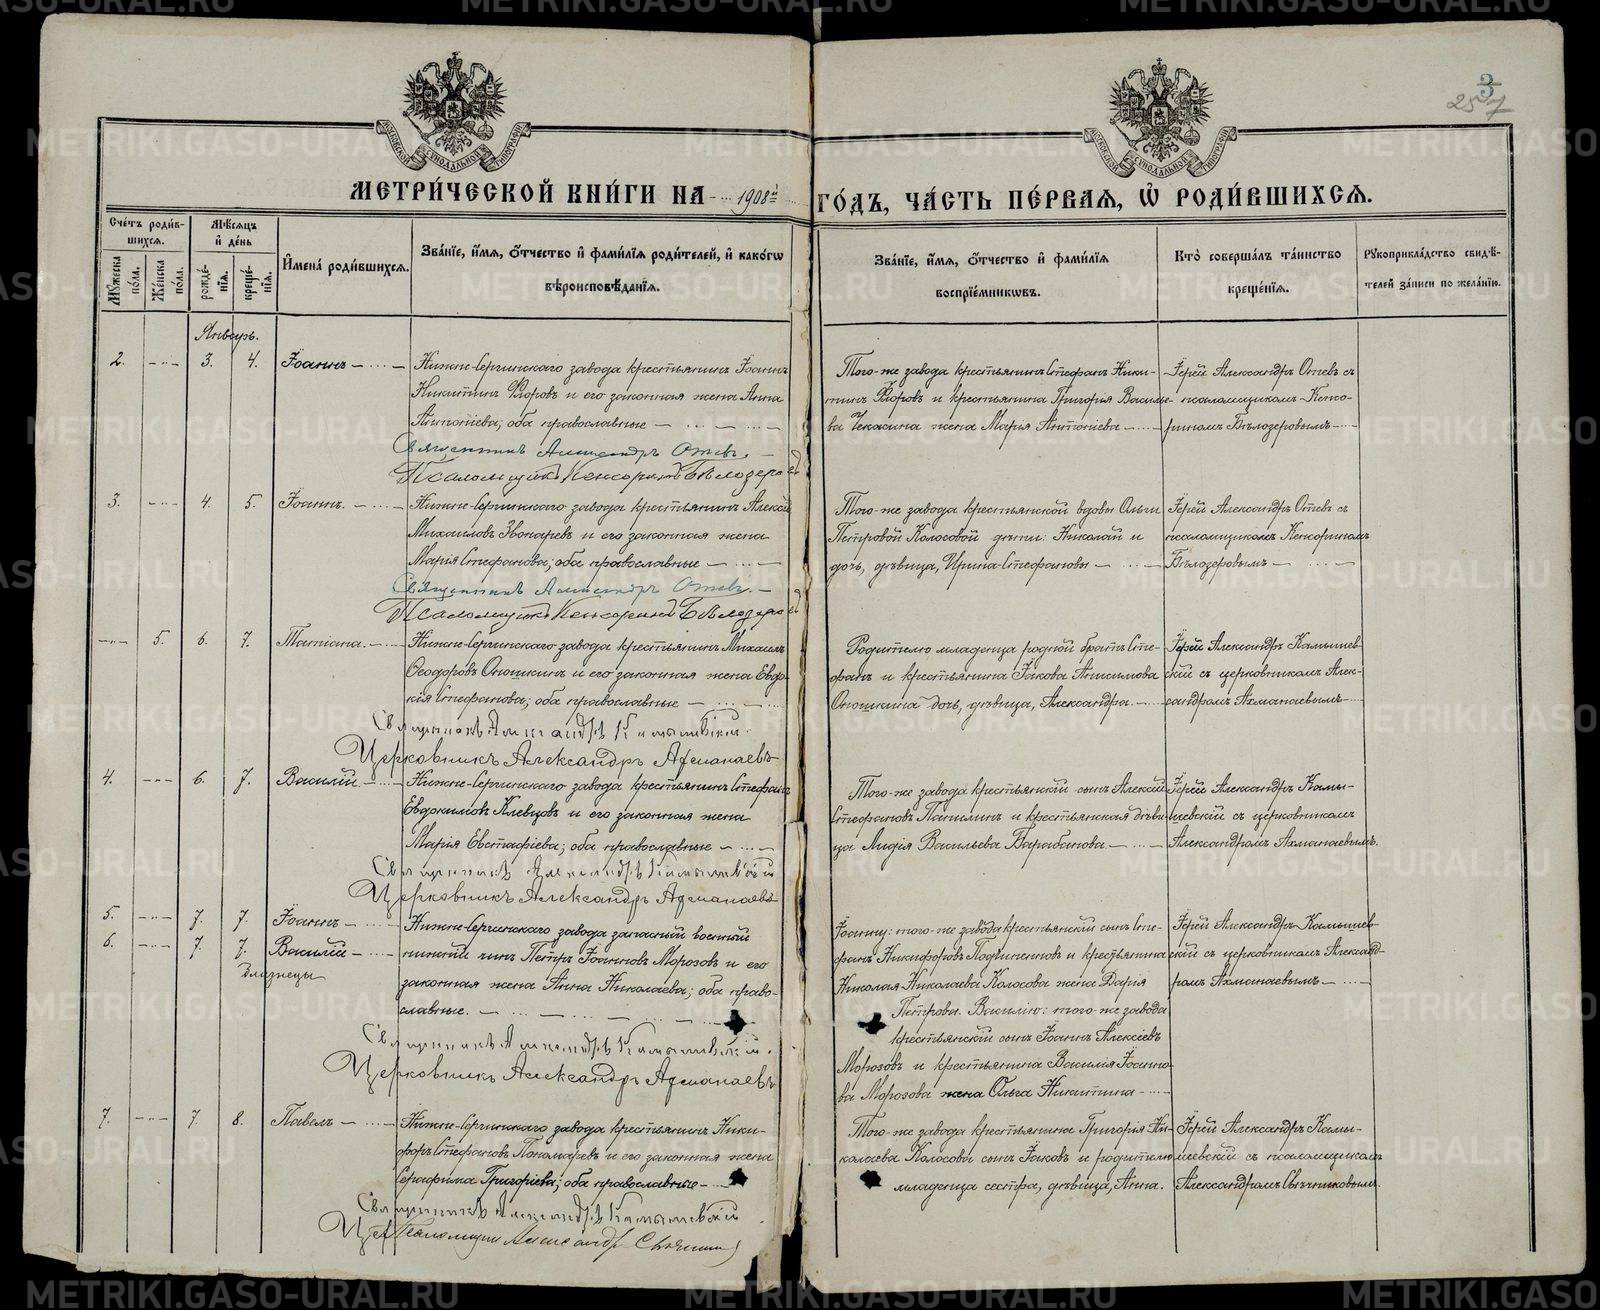 3
257
МОСКОВСКОЙ СѴНОДАЛЬНОЙ ТИПОГРАФІИ
МОСКОВСКОЙ СѴНОДАЛЬНОЙ ТИПОГРАФІИ
МЕТРИ́ЧЕСКОЙ КНИ́ГИ НА 1908й ГО́ДЪ, ЧА́СТЬ ПЕ́РВАЯ, Ѡ РОДИ́ВШИХСЯ.
Сче́тъ роди́в-
шихся.
Му́жеска по́ла.
Же́нска по́ла.
Мѣ́сяцъ
и҆ де́нь
рожде́нїя.
креще́нїя.
И҆мена̀ роди́вшихся.
Зва́нїе, и҆́мя, о҆́тчество и҆ фами́лїя роди́телей, и҆ како́гѡ
вѣроисповѣ́данїя.
Зва́нїе, и҆́мя, о҆́тчество и҆ фами́лїя
воспрїе́мникѡвъ.
Кто̀ соверша́лъ та́инство
креще́нїя.
Рꙋкоприкла́дство свидѣ́-
телей за́писи по жела́нїю.
Январь.
2. 3. 4. Іоаннъ
Нижне-Сергинскаго завода крестьянинъ Іоаннъ
Никитинъ Ѳлоровъ и его законная жена Анна
Антоніева; оба православные
Священникъ Александръ Отевъ.
Псаломщикъ Кенсоринъ Бѣлозеровъ
Того-же завода крестьянинъ Стефанъ Ники-
тинъ Ѳлоровъ и крестьянина Григорія Василье-
ва Чекасина жена Марія Антоніева
Іерей Александръ Отевъ съ
псаломщикомъ Кенсо-
риномъ Бѣлозеровымъ
3. 4. 5. Іоаннъ.
Нижне-Сергинскаго завода крестьянинъ Алексій
Михаиловъ Звонаревъ и его законная жена
Марія Стефанова; оба православные
Священникъ Александръ Отевъ.
Псаломщикъ Кенсоринъ Бѣлозеровъ
Того-же завода крестьянской вдовы Ольги
Петровой Колосовой дѣти: Николай и
дочь, дѣвица, Ирина Стефановы
Іерей Александръ Отевъ съ
псаломщикомъ Кенсориномъ
Бѣлозеровымъ
5. 6. 7. Татіана.
Нижне-Сергинскаго завода крестьянинъ Михаилъ
Ѳеодоровъ Оношкинъ и его законная жена Евдо-
кія Стефанова; оба православные
Священникъ Александръ Камышевскій.
Церковникъ Александръ Ахманаевъ
Родителю младенца родной братъ Сте-
фанъ и крестьянина Іакова Анисимова
Оношкина дочь, дѣвица, Александра.
Іерей Александръ Камышев-
скій съ церковникомъ Алек-
сандромъ Ахманаевымъ
4. 6. 7. Василій.
Нижне-Сергинскаго завода крестьянинъ Стефанъ
Евдокимовъ Клевцовъ и его законная жена
Марія Евстафіева; оба православные
Священникъ Александръ Камышевскій
Церковникъ Александръ Ахманаевъ
Того-же завода крестьянскій сынъ Алексій
Стефановъ Папилинъ и крестьянская дѣви-
ца Лидія Васильева Барабанова
Іерей Александръ Камы-
шевскій съ церковникомъ
Александромъ Ахманаевымъ.
5. 7. 7. Іоаннъ
6. 7. 7. Василій
Близнецы
Нижне-Сергинскаго завода запасный военный
нижній чинъ Петръ Іоанновъ Морозовъ и его
законная жена Анна Николаева; оба право-
славные.
Священникъ Александръ Камышевскій.
Церковникъ Александръ Ахманаевъ
Іоанну: того-же завода крестьянскій сынъ Сте-
фанъ Никифоровъ Подчиненовъ и крестьянина
Николая Николаева Колосова жена Дарія
Петрова. Василію: того-же завода
крестьянскій сынъ Іоаннъ Алексіевъ
Морозовъ и крестьянина Василія Іоанно-
ва Морозова жена Ольга Никитина
Іерей Александръ Камышев-
скій съ церковникомъ Александ-
ромъ Ахманаевымъ
7. 7. 8. Павелъ
Нижне-Сергинскаго завода крестьянинъ Ники-
форъ Стефановъ Пономаревъ и его законная жена
Серафима Григоріева; оба православные
Священникъ Александръ Камышевскій
Псаломщикъ Александръ
Того-же завода крестьянина Григорія Ни-
колаева Колосова сынъ Іаковъ и родителю
младенца сестра, дѣвица, Анна.
Іерей Александръ Камы-
шевскій съ псаломщикомъ
Александромъ Свѣчниковымъ.
METRIKI.GASO-URAL.RU